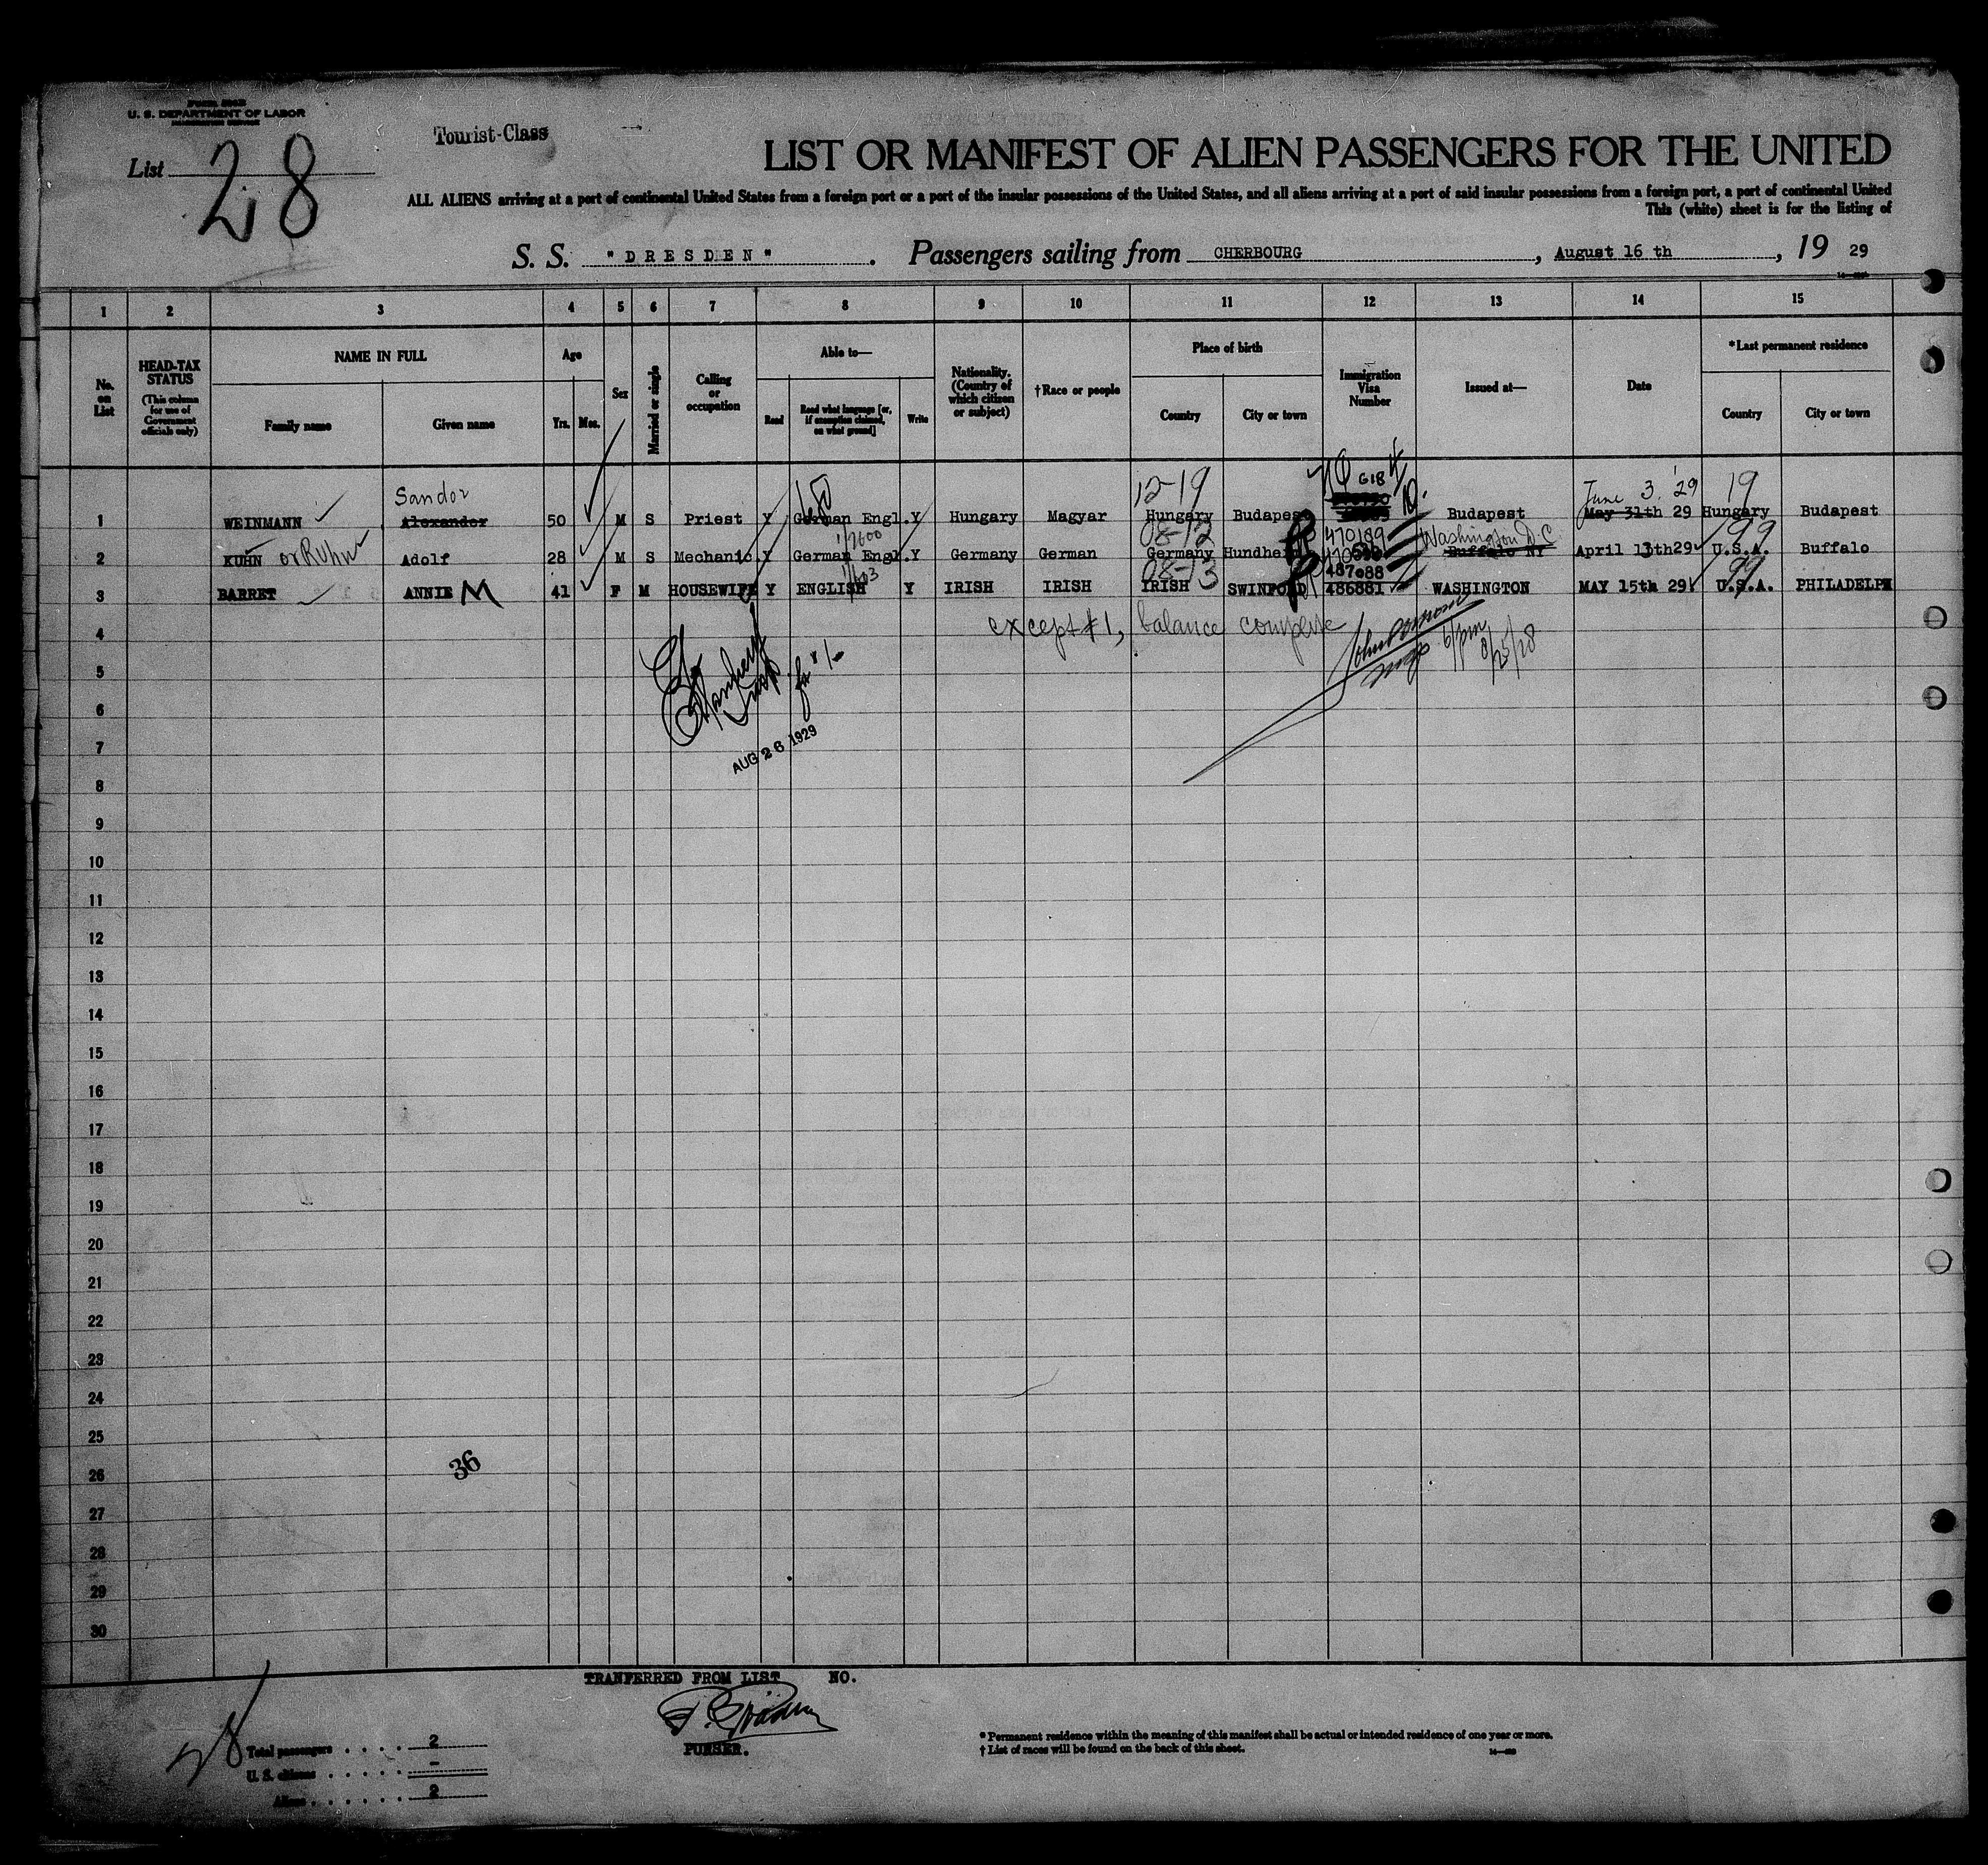 Form 500B
U. S. DEPARTMENT OF LABOR
IMMIGRATION SERVICE
List 28
Tourist-Class
LIST OR MANIFEST OF ALIEN PASSENGERS FOR THE UNITED
ALL ALIENS arriving at a port of continental United States from a foreign port or a port of the insular possessions of the United States, and all aliens arriving at a port of said insular possessions from a foreign port, a port of continental United
This (white) sheet is for the listing of
S. S. "DRESDEN". Passengers sailing from CHERBOURG, August 16 th, 19 29
1 2 3 4 5 6 7 8 9 10 11 12 13 14 15
No. on List
HEAD-TAX STATUS (This column for use of Government officials only)
NAME IN FULL
Family name Given name
Age
Yrs. Mos.
Sex
Married or single
Calling or occupation
Able to—
Read Read what language [or, if exemption claimed, on what ground] Write
Nationality. (Country of which citizen or subject)
†Race or people
Place of birth
Country City or town
Immigration Visa Number
Issued at—
Date
*Last permanent residence
Country City or town
Sandor 12-19 618 June 3. '29 19
1 WEINMANN Alexander 50 M S Priest Y German Engl. Y Hungary Magyar Hungary Budapest Budapest May 31th 29 Hungary Budapest
08-12 470189 Washington D.C 99
2 KUHN or RUhn Adolf 28 M S Mechanic Y German Engl. Y Germany German Germany Buffalo NY April 13th29 U.S.A. Buffalo
08-13 487088 99
3 BARRET ANNIE M 41 F M HOUSEWIFE Y ENGLISH Y IRISH IRISH IRISH SWINFORD 486881 WASHINGTON MAY 15th 29 U.S.A. PHILADELPH
4 except #1, balance
6/pm 8/25/28
5
6
7
AUG 26 1929
8
9
10
11
12
13
14
15
16
17
18
19
20
21
22
23
24
25
36
26
27
28
29
30
TRANFERRED FROM LIST NO.
PURSER.
28
Total passengers . . . . 2
U. S. citizens . . . . . -
Aliens . . . . . . 2
* Permanent residence within the meaning of this manifest shall be actual or intended residence of one year or more.
† List of races will be found on the back of this sheet.